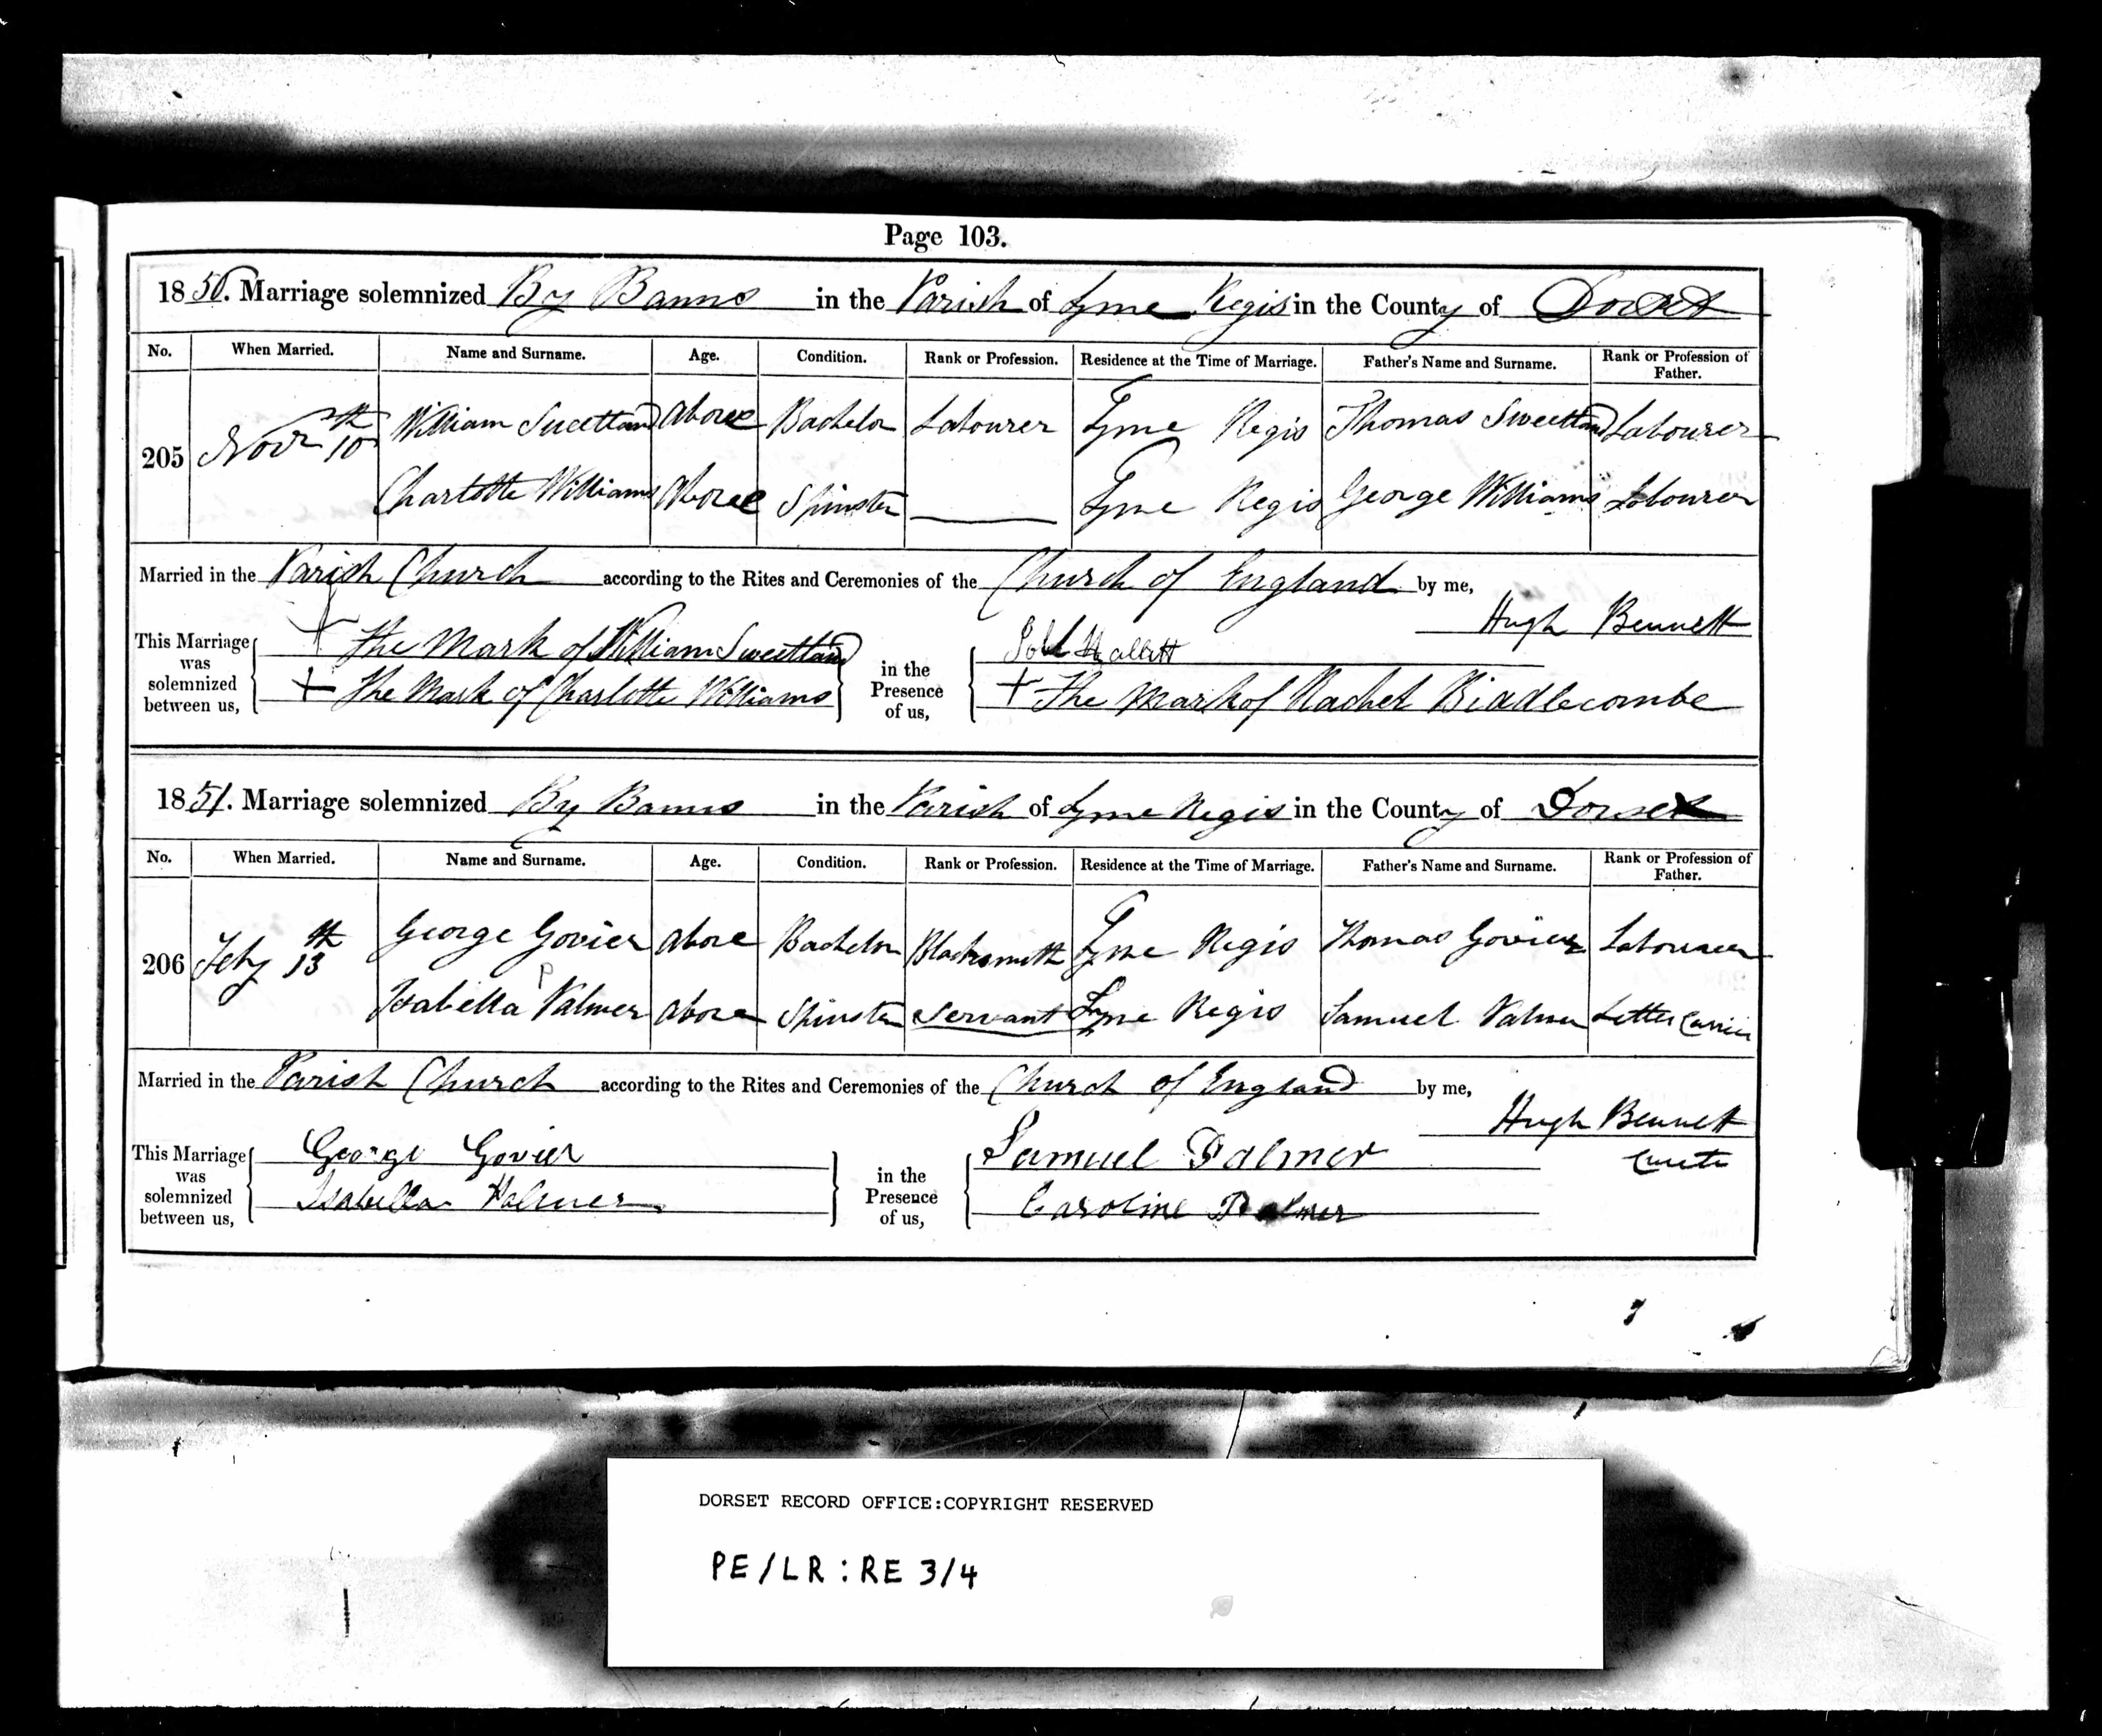 Page 103.
1850. Marriage solemnized By Banns in the Parish of Lyme Regis in the County of Dorset
No. When Married. Name and Surname. Age. Condition. Rank or Profession. Residence at the Time of Marriage. Father's Name and Surname. Rank or Profession of Father.
205 Novr 10th William Sweetland Above Bachelor Labourer Lyme Regis Thomas Sweetland Labourer
Charlotte Williams Above Spinster Lyme Regis George Williams Labourer
Married in the Parish Church according to the Rites and Ceremonies of the Church of England by me,
Hugh Bennett
This Marriage was solemnized between us,
+ The Mark of William Sweetland
+ The Mark of Charlotte Williams
in the Presence of us,
Hallett
+ The Mark of Rachel Biddlecombe
1851. Marriage solemnized By Banns in the Parish of Lyme Regis in the County of Dorset
No. When Married. Name and Surname. Age. Condition. Rank or Profession. Residence at the Time of Marriage. Father's Name and Surname. Rank or Profession of Father.
206 Feby 13th George Govier Above Bachelor Blacksmith Lyme Regis Thomas Govier Labourer
P
Isabella Palmer Above Spinster Servant Lyme Regis Samuel Palmer Letter Carrier
Married in the Parish Church according to the Rites and Ceremonies of the Church of England by me,
Hugh Bennett
Curate
This Marriage was solemnized between us,
George Govier
Isabella Palmer
in the Presence of us,
Samuel Palmer
Caroline Palmer
DORSET RECORD OFFICE:COPYRIGHT RESERVED
PE/LR:RE 3/4